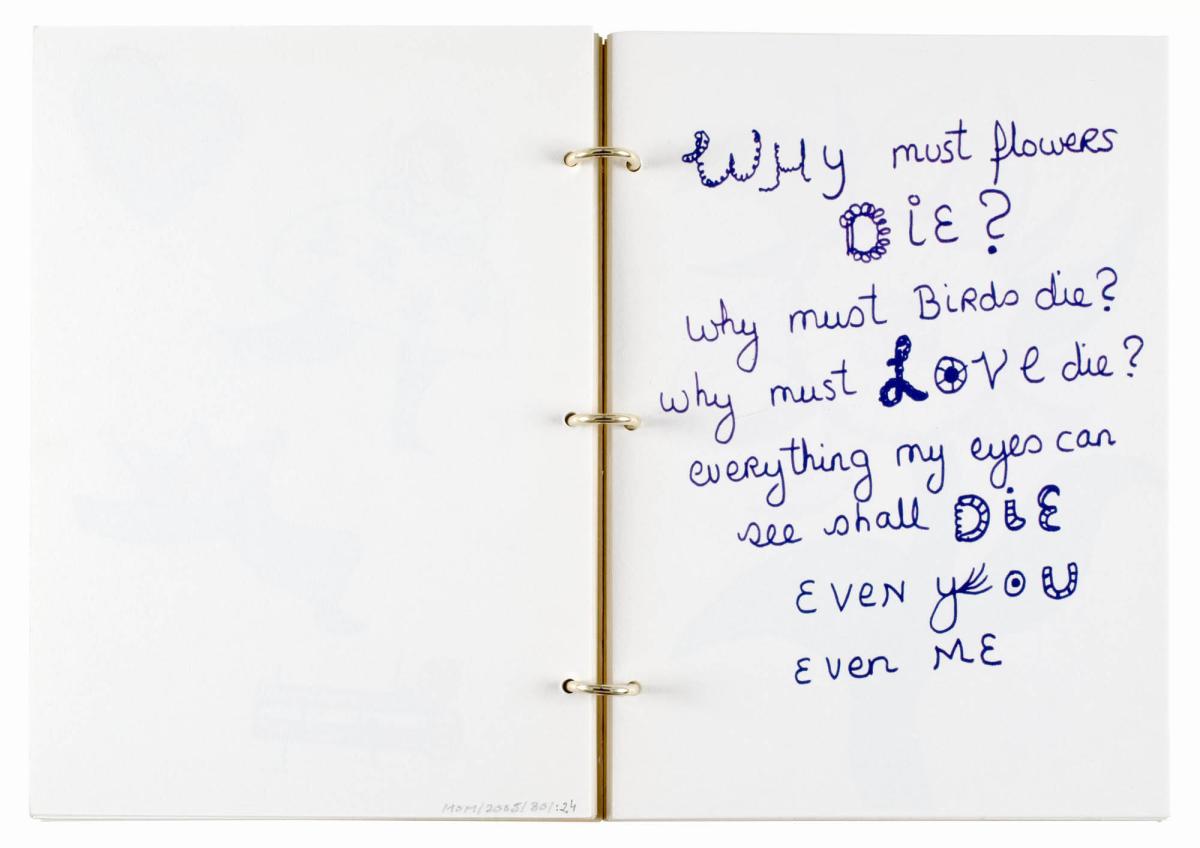 MOM/2005/80/:24
WHy must flowers
DiE?
why must BiRds die?
why must LOVe die?
everything my eyes can
see shall DiE
EVEN yOU
EVen ME